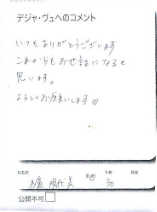 デジャ・ヴュへのコメント
いつもありがとうございます
これからもお世話になると
思います。
よろしくお願いします
公開不可□